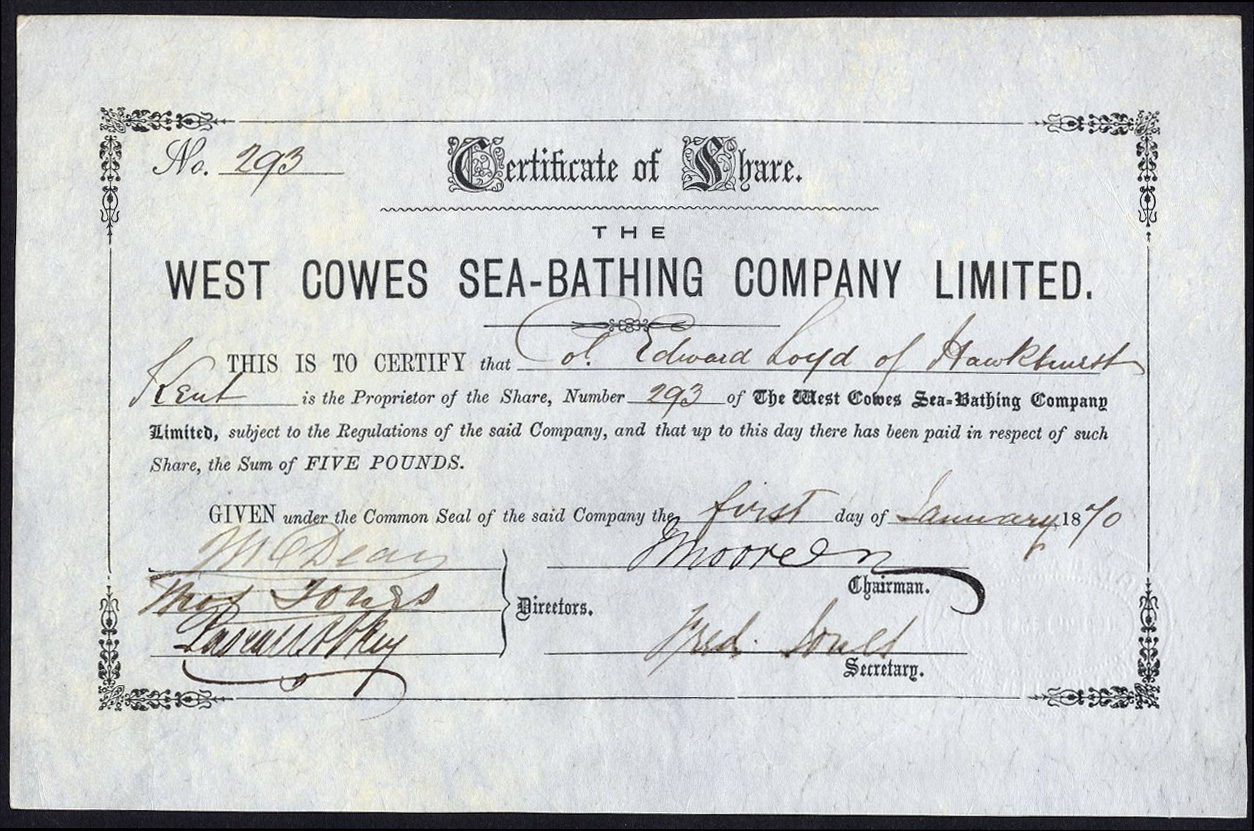 No. 293
Certificate of Share.
THE
WEST COWES SEA-BATHING COMPANY LIMITED.
THIS IS TO CERTIFY that Col. Edward Loyd of Hawkhurst
Kent is the Proprietor of the Share, Number 293 of The West Cowes Sea-Bathing Company
Limited, subject to the Regulations of the said Company, and that up to this day there has been paid in respect of such
Share, the Sum of FIVE POUNDS.
GIVEN under the Common Seal of the said Company the first day of January 1870
Chairman.
Thos Jones
Directors.
Fred.
Secretary.